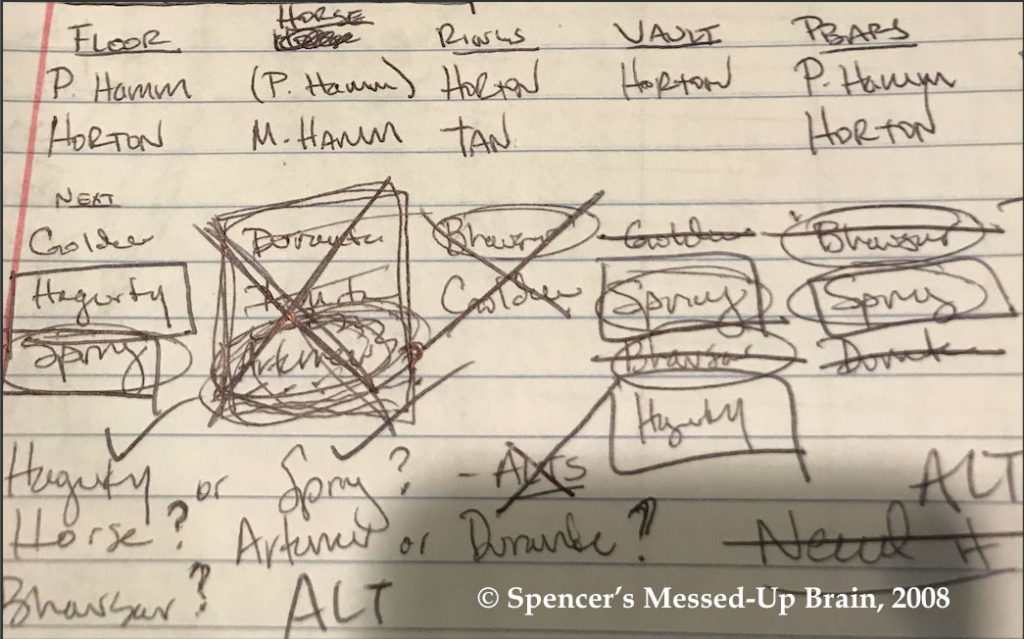 FLOOR HORSE RINGS VAULT PBARS
P. Hamm (P. Hamm) HORTON HORTON P. Hamm
HORTON M. HAMM TAN HORTON
NEXT
Golder Durante Bhavsar Golder Bhavsar
Hagerty Golder Spring Spring
Spring Artemev Bhavsar Durante
Hagerty
Hagerty or Spring? - ALTS ALT
Horse? Artemev or Durante? Need it
Bhavsar? ALT
© Spencer's Messed-Up Brain, 2008